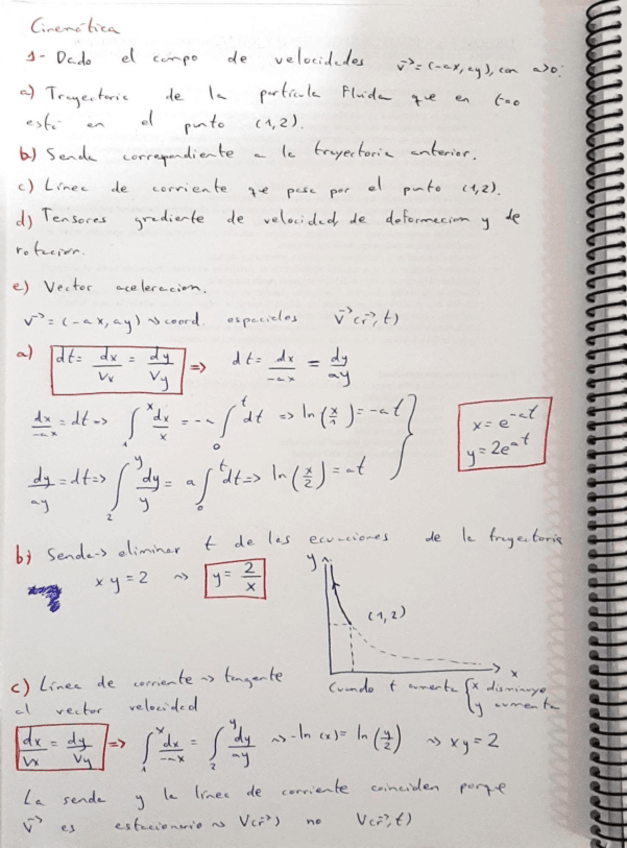 Cinemática
1- Dado el campo de velocidades v⃗=(-ax,ay), con a>0:
a) Trayectoria de la partícula fluida que en t=0
está en el punto (1,2).
b) Senda correspondiente a la trayectoria anterior.
c) Línea de corriente que pasa por el punto (1,2).
d) Tensores gradiente de velocidad, de deformacion y de
rotación.
e) Vector aceleracion.
v⃗=(-ax,ay) → coord. espaciales v⃗(r⃗,t)
a) dt = dx/Vx = dy/Vy => dt = dx/-ax = dy/ay
dx/-ax = dt => ∫₁ˣ dx/x = -a ∫₀ᵗ dt => ln(x/1) = -at
dy/ay = dt => ∫₂ʸ dy/y = a ∫₀ᵗ dt => ln(x/2) = at
x = e^-at
y = 2e^at
b) Senda -> eliminar t de las ecuaciones de la trayectoria
xy = 2 → y = 2/x
y
(1,2)
x
Cuando t aumenta { x disminuye
y aumenta
c) Línea de corriente → tangente
al vector velocidad
dx/Vx = dy/Vy => ∫₁ˣ dx/-ax = ∫₂ʸ dy/ay → -ln(x) = ln(y/2) → xy = 2
La senda y la línea de corriente coinciden porque
v⃗ es estacionario → V(r⃗) no V(r⃗,t)